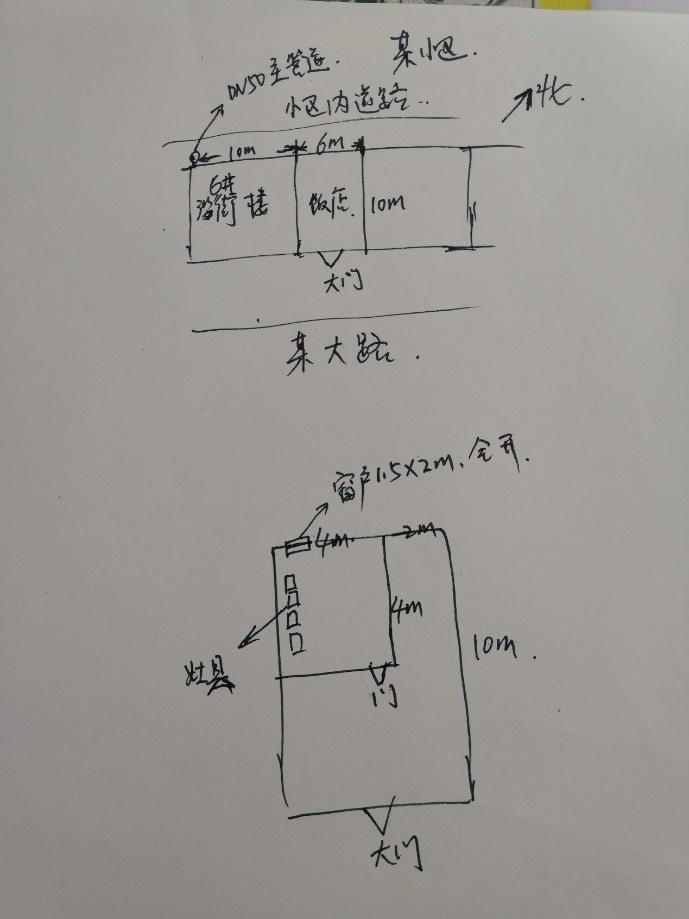 DN50主管道.
某小区.
小区内道路..
北.
10m
6m
6#
沿街楼
饭店.
10m
大门
某大路.
窗户1.5×2m.全开.
4m.
2m
4m
10m.
灶具
门
大门